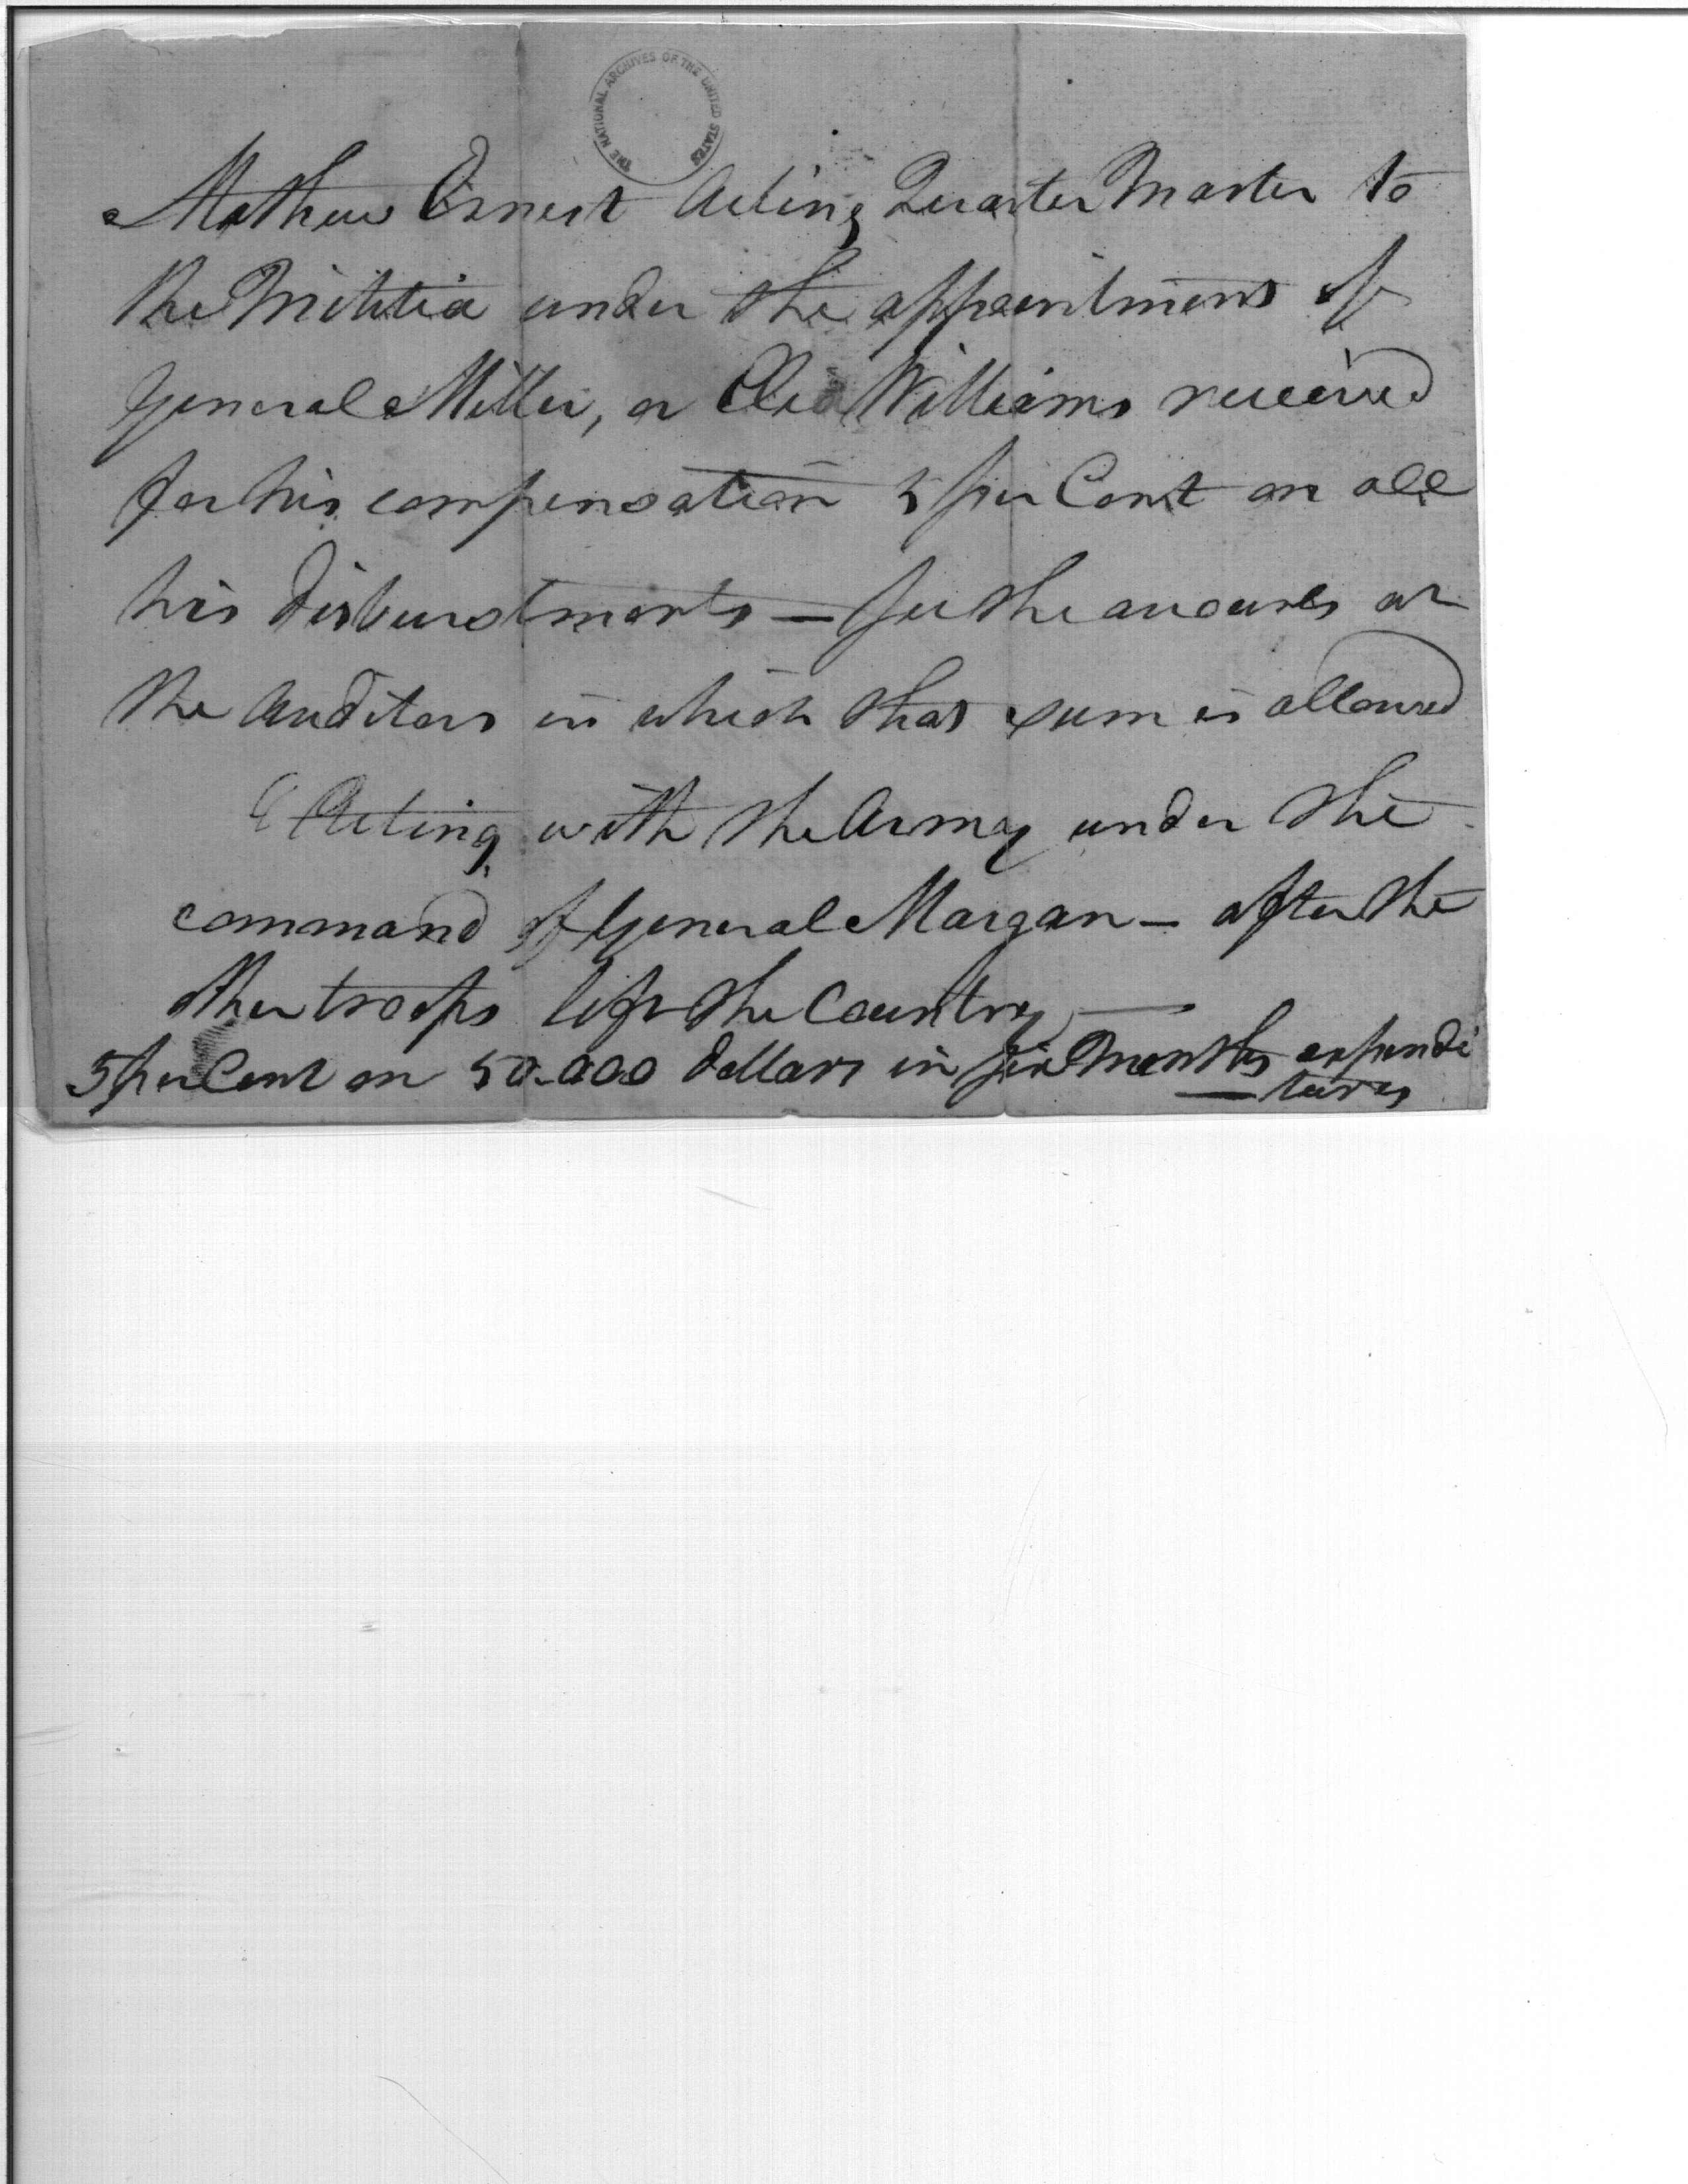 THE NATIONAL ARCHIVES OF THE UNITED STATES
Mathew Ernest Acting Quarter Master to
the Militia under the appointment of
General Miller, or Williams received
for his compensation 5 per Cent on all
his disburstments — See the accounts at
the Auditors in which that sum is allowed
Acting with the Army under the
command of General Morgan — after the
other troops left the Country —
5 per Cent on 50.000 dollars in six Months expendi
— tures